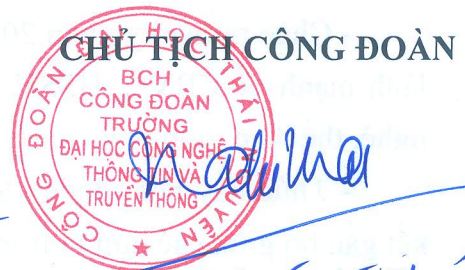 CHỦ TỊCH CÔNG ĐOÀN
CÔNG ĐOÀN ĐẠI HỌC THÁI NGUYÊN
BCH
CÔNG ĐOÀN
TRƯỜNG
ĐẠI HỌC CÔNG NGHỆ
THÔNG TIN VÀ
TRUYỀN THÔNG